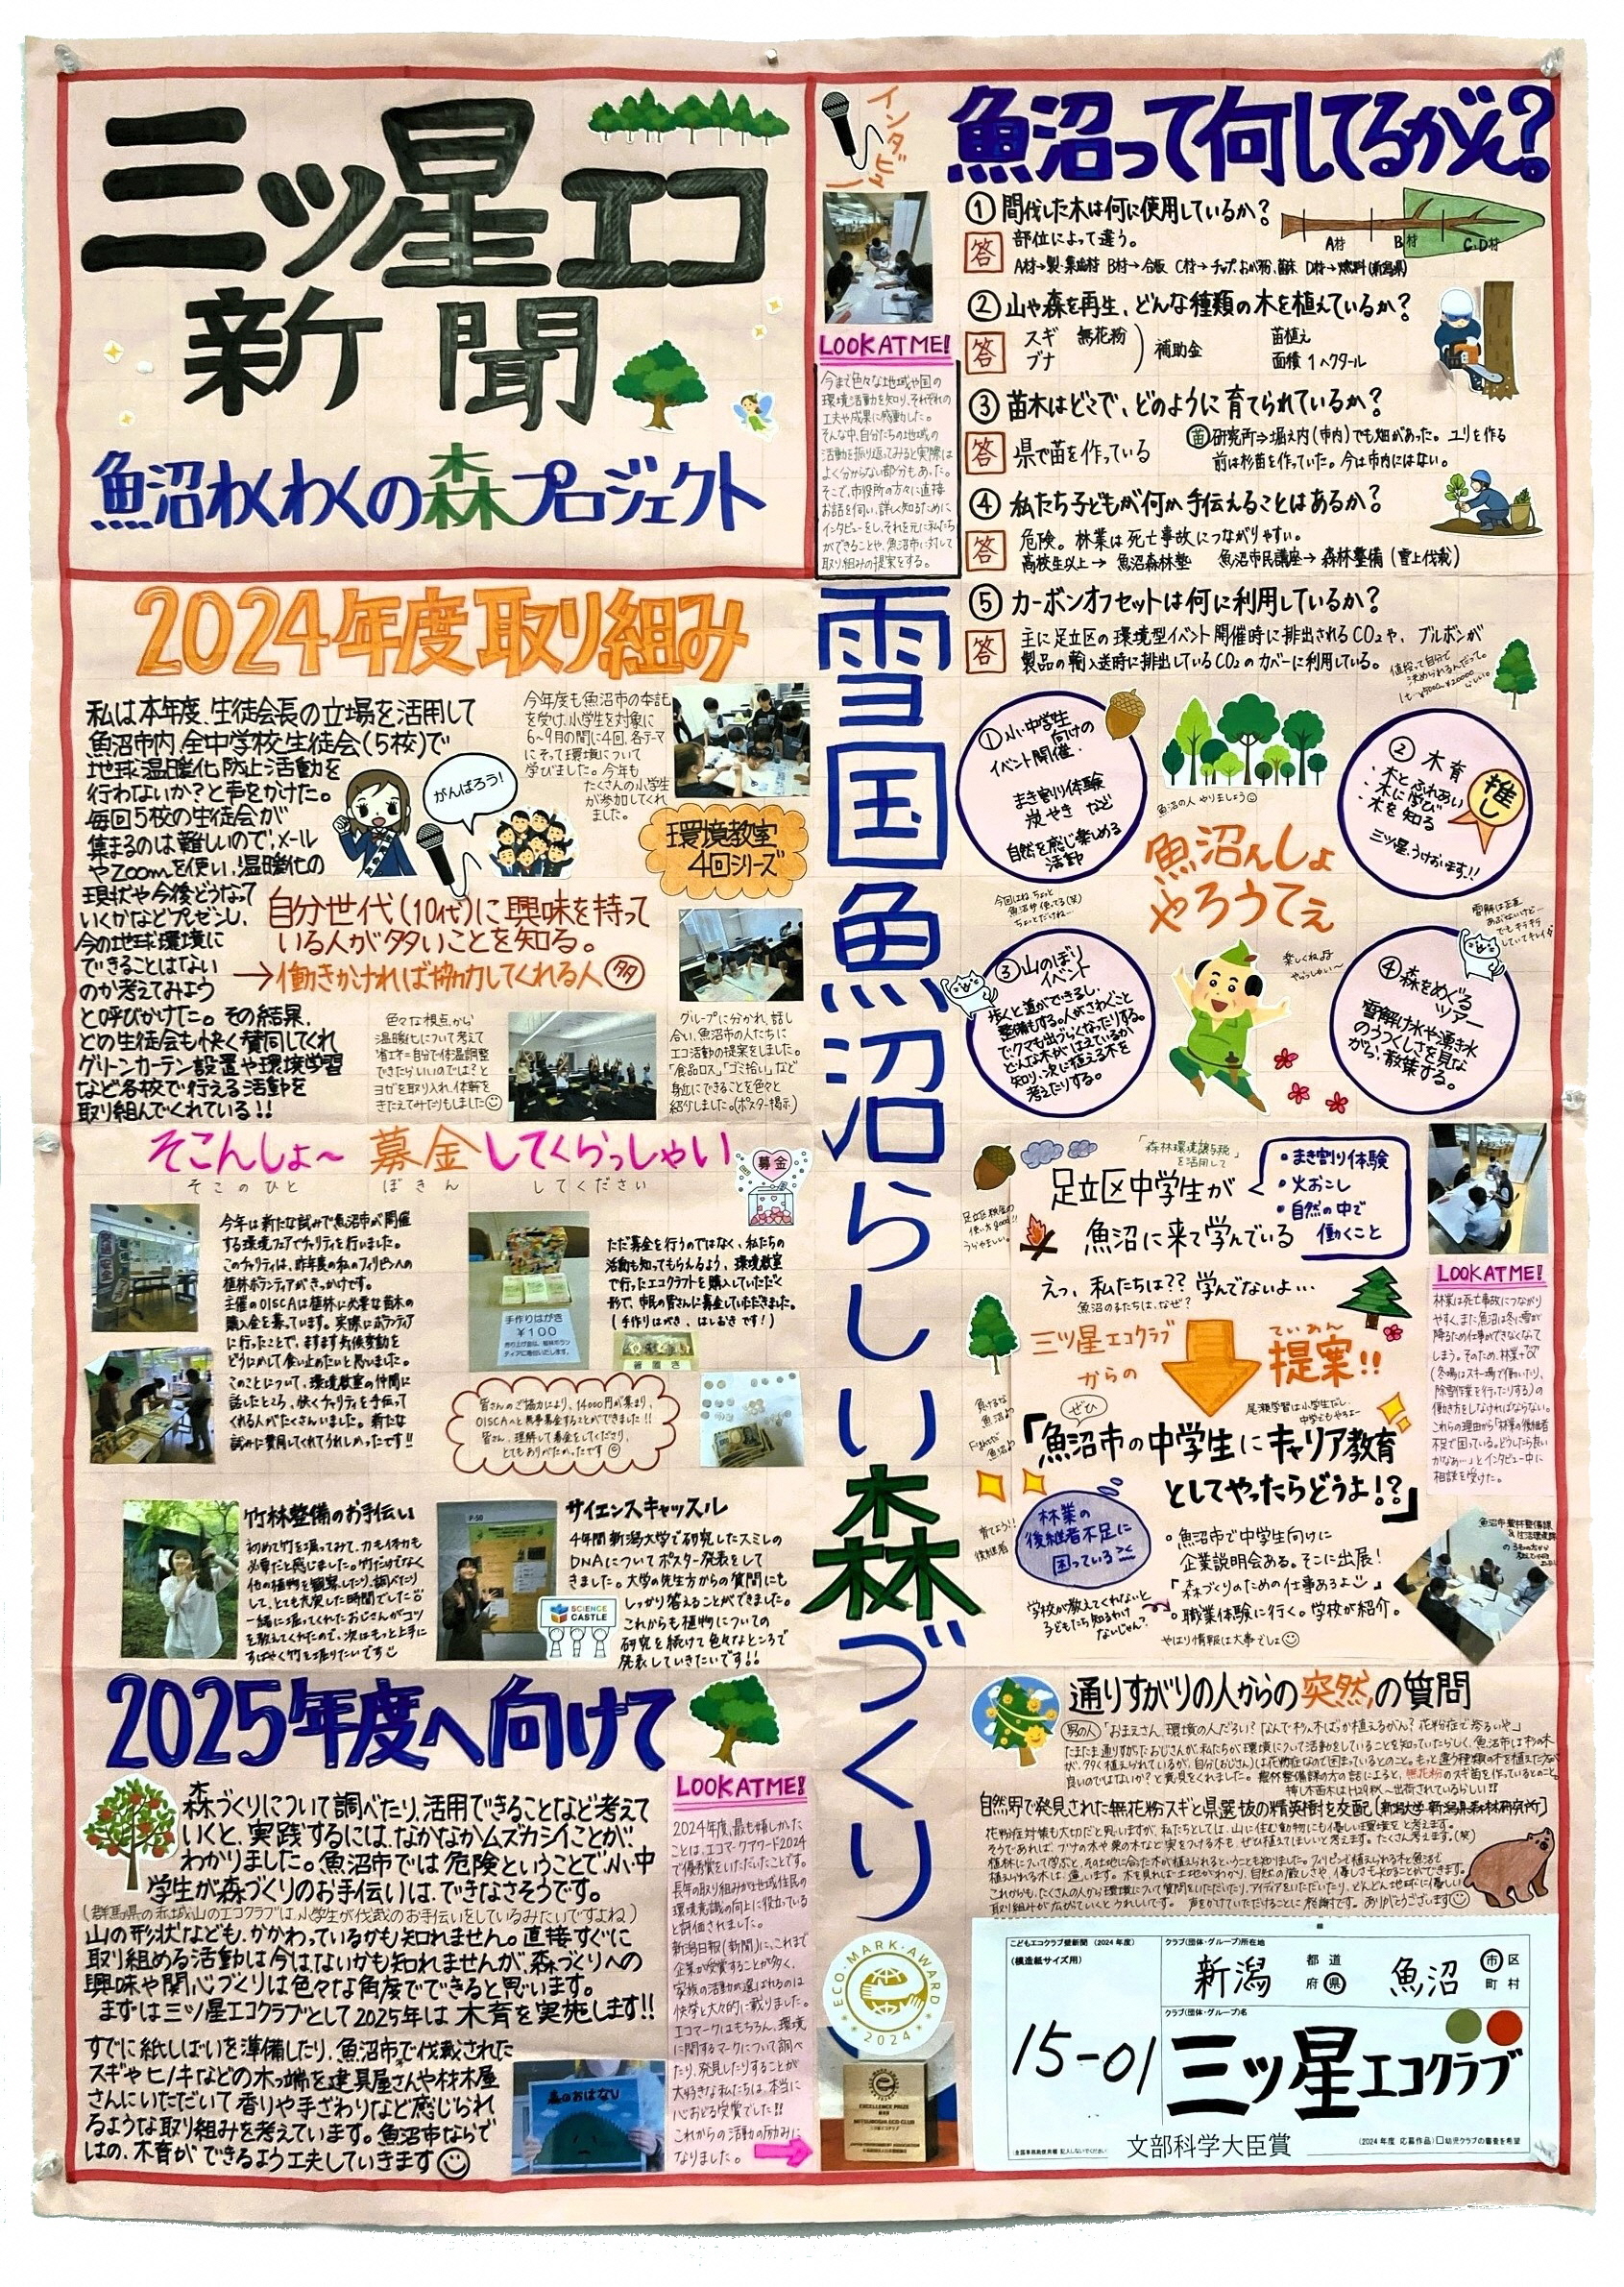 三ツ星エコ
新聞
魚沼わくわくの森プロジェクト
インタビュー
魚沼って何してるがん?
① 間伐した木は何に使用しているか?
答
部位によって違う。
A材 B材 C,D材
② 山や森を再生、どんな種類の木を植えているか?
答
スギ 無花粉
ブナ
補助金
苗植え
面積 1ヘクタール
③ 苗木はどこで、どのように育てられているか?
答
県で苗を作っている
苗 研究所⇒堀之内(市内)でも畑があった。ユリを作る
前は杉苗を作っていた。今は市内にはない。
④ 私たち子どもが何か手伝えることはあるか?
答
危険。林業は死亡事故につながりやすい。
高校生以上→ 魚沼森林塾 魚沼市民講座→ 森林整備(雪上伐載)
⑤ カーボンオフセットは何に利用しているか?
答
主に足立区の環境型イベント開催時に排出されるCO₂や、ブルボンが
製品の輸入送時に排出しているCO₂のカバーに利用している。
LOOK AT ME!
今まで色々な地域や国の
環境活動を知り、それぞれの
工夫や成果に感動した。
そんな中、自分たちの地域の
活動を振り返ってみると実際は
よく分からない部分もあった。
そこで、市役所の方々に直接
お話を伺い、詳しく知るために
インタビューをし、それを元に私たち
ができることや、魚沼市に対して
取り組みの提案をする。
雪国魚沼らしい森づくり
2024年度取り組み
私は本年度、生徒会長の立場を活用して
魚沼市内全中学校生徒会(5校)で
地球温暖化防止活動を
行わないか?と声をかけた。
毎回5校の生徒会が
集まるのは難しいので、メール
やZoomを使い、温暖化の
現状や今後どうなって
いくかなどプレゼンし、
今の地球環境に
できることはない
のか考えてみよう
と呼びかけた。その結果、
どの生徒会も快く賛同してくれ
グリーンカーテン設置や環境学習
など各校で行える活動を
取り組んでくれている!!
がんばろう!
今年度も魚沼市の委託
を受け、小学生を対象に
6~9月の間に4回、各テーマ
にそって環境について
学びました。今年も
たくさんの小学生
が参加してくれ
ました。
環境教室
4回シリーズ
自分世代(10代)に興味を持って
いる人が多いことを知る。
→働きかければ協力してくれる人 多
色々な視点から
温暖化について考えて
省エネ=自分で体温調整
できたらいいのでは?と
ヨガを取り入れ、体幹を
きたえてみたりもしました
グループに分かれ、話し
合い、魚沼市の人たちに
エコ活動の提案をしました。
「食品ロス」「ゴミ拾い」など
身近にできることを色々と
紹介しました。(ポスター掲示)
① 小中学生
向けの
イベント開催。
まき割り体験
炭やき など
自然を感じ楽しめる
活動
② 木育
・木とふれあい
・木に学び
・木を知る
三ツ星、うけおいます!!
推し
魚沼の人 やりましょう
魚沼んしょ
やろうてぇ
③ 山のぼり
イベント
歩くと道ができるし、
整備もする。人がさわぐこと
でクマも出づらくなったりする。
どんな木がはえているか
知り、次に植える木を
考えたりする。
④ 森をめぐる
ツアー
雪解け水や湧き水
のうつくしさを見な
がら、散策する。
そこんしょ~ 募金してくらっしゃい
そこのひと ぼきん してください
募金
今年は新たな試みで魚沼市が開催
する環境フェアでチャリティを行いました。
このチャリティは、昨年度の私のフィリピンへの
植林ボランティアがきっかけです。
主催のOISCAは植林に必要な苗木の
購入金を募っています。実際にボランティア
に行ったことで、ますます気候変動を
どうにかして食い止めたいと思いました。
このことについて、環境教室の仲間に
話したところ、快くチャリティを手伝って
くれる人がたくさんいました。新たな
試みに賛同してくれてうれしかったです!!
手作りはがき
¥100
ただ募金を行うのではなく、私たちの
活動も知ってもらえるよう、環境教室
で行ったエコクラフトを購入していただく
形で、市民の皆さんに募金していただきました。
(手作りはがき、はしおきです!)
箸置き
皆さんのご協力により、14000円が集まり、
OISCAへと無事募金することができました!!
皆さん、理解して募金をしてくださり、
とてもありがたかったです
竹林整備のお手伝い
初めて竹を掘ってみて、力も体力も
必要だと感じました。竹だけでなく
他の植物を観察したり、調べたり
して、とても充実した時間でした。
一緒に掘ってくれたおじさんがコツ
を教えてくれたので、次はもっと上手に
すばやく竹を掘りたいです
サイエンスキャッスル
4年間新潟大学で研究したスミレの
DNAについてポスター発表をして
きました。大学の先生方からの質問にも
しっかり答えることができました。
これからも植物についての
研究を続けて色々なところで
発表していきたいです!!
SCIENCE
CASTLE
「森林環境譲与税」
を活用して
足立区中学生が
魚沼に来て学んでいる
・まき割り体験
・火おこし
・自然の中で
働くこと
えっ、私たちは?? 学んでないよ…
魚沼の子たちは、なぜ?
三ツ星エコクラブ
からの
ていあん
提案!!
ぜひ
「魚沼市の中学生にキャリア教育
としてやったらどうよ!?」
尾瀬学習は小学生だし、
中学でもやろよー
林業の
後継者不足に
困っている
・魚沼市で中学生向けに
企業説明会ある。そこに出展!
「森づくりのための仕事あるよ」
・職業体験に行く。学校が紹介。
やはり情報は大事でしょ
学校が教えてくれないと
子どもたち知るわけ
ないじゃん?
LOOK AT ME!
林業は死亡事故につながり
やすく、また魚沼は冬に雪が
降るため仕事ができなくなって
しまう。そのため、林業+α
(冬場はスキー場で働いたり、
除雪作業を行ったりする)の
働き方をしなければならない。
これらの理由から「林業の後継者
不足で困っている。どうしたら良い
かなぁ…」とインタビュー中に
相談を受けた。
2025年度へ向けて
森づくりについて調べたり、活用できることなど考えて
いくと、実践するには、なかなかムズカシイことが
わかりました。魚沼市では危険ということで、小・中
学生が森づくりのお手伝いは、できなさそうです。
(群馬県の赤城山のエコクラブは、小学生が伐載のお手伝いをしているみたいですよね)
山の形状なども、かかわっているかも知れません。直接すぐに
取り組める活動は今はないかも知れませんが、森づくりへの
興味や関心づくりは色々な角度でできると思います。
まずは三ツ星エコクラブとして2025年は木育を実施します!!
すでに紙しばいを準備したり、魚沼市で伐載された
スギやヒノキなどの木っ端を建具屋さんや材木屋
さんにいただいて香りや手ざわりなど感じられ
るような取り組みを考えています。魚沼市ならで
はの、木育ができるよう工夫していきます
森のおはなし
LOOK AT ME!
2024年度、最も嬉しかった
ことは、エコマークアワード2024
で優秀賞をいただいたことです。
長年の取り組みが地域住民の
環境意識の向上に役立っている
と評価されました。
新潟日報(新聞)に、これまで
企業が受賞することが多く、
家族の活動が選ばれるのは
快挙と大々的に載りました。
エコマークはもちろん、環境
に関するマークについて調べ
たり、発見したりすることが
大好きな私たちは、本当に
心おどる受賞でした!!
これからの活動の励みに
なりました。
ECO MARK AWARD
2024
EXCELLENCE PRIZE
MITSUBOSHI ECO CLUB
通りすがりの人からの突然の質問
男の人「おまえさん、環境の人だろい? なんで杉の木ばっか植えるがん? 花粉症で参るいや」
自然界で発見された無花粉スギと県選抜の精英樹を交配[新潟大学・新潟県森林研究所]
こどもエコクラブ壁新聞(2024年度)
(模造紙サイズ用)
クラブ(団体・グループ)所在地
新潟 都道府県 魚沼 市区町村
クラブ(団体・グループ)名
15-01
三ツ星エコクラブ
文部科学大臣賞
(2024年度 応募作品)□幼児クラブの審査を希望